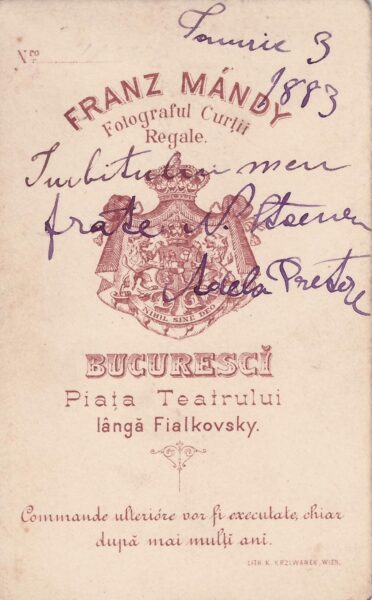 Nro
Ianurie 3
1883
FRANZ MÁNDY
Fotograful Curţii
Regale.
Iubitului meu
frate N.
Adela
NIHIL SINE DEO
BUCURESCĬ
Piaţa Teatrului
lângă Fialkovsky.
Commande ulterióre vor fi executate, chiar
după mai mulţi ani.
LITH. K. KRZIWANEK, WIEN.